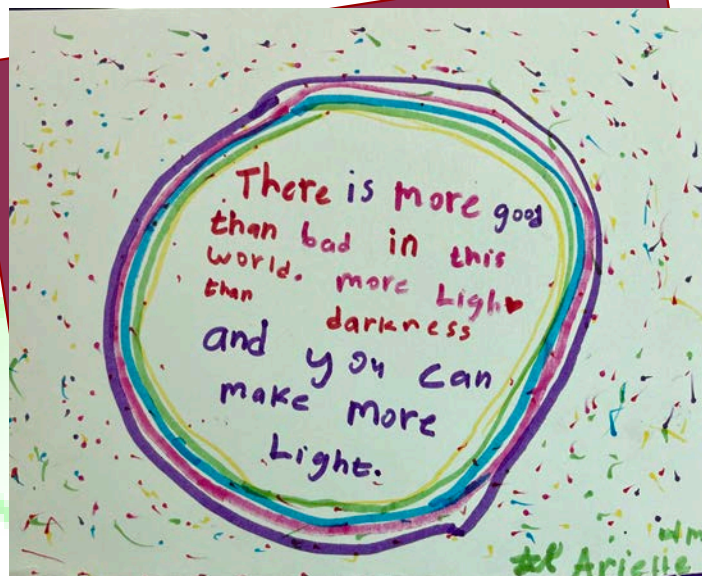 There is more good
than bad in this
world. more Ligh♥
than darkness
and you can
make more
Light.
Arielle